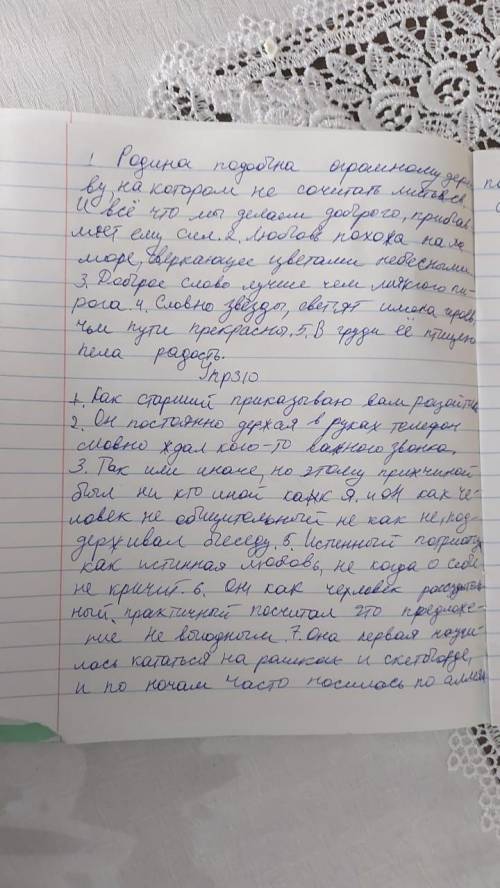 1 Родина подобна огромному дере
ву, на котором не сочитать листьев.
И всё что мы делаем доброго, прибав
ляет ему сил. 2. Любовь похожа на
море, сверкающее цветами небесными
3. Доброе слово лучше чем мягкого пи
рога. 4. Словно звёзды, светят имена
чьи пути прекрасны. 5. В груди её птицею
пела радость.
Упр310
1. Как старший приказываю вам разойтись
2. Он постоянно держал в руках телефон
словно ждал кого-то важного звонка.
3. Так или иначе, но этому причиной
был ни кто иной как я. 4 он как че-
ловек не общительный не как не, под
держивал беседу. 5. Истенный патриотизм
как истинная любовь, не когда о себе
не кричит. 6. Он как человек рассудитель
ный, практичный посчитал это предложе-
ние не выгодным. 7. Она первая научи-
лась кататься на роликах и скетборде,
и по ночам часто носилась по аллеям